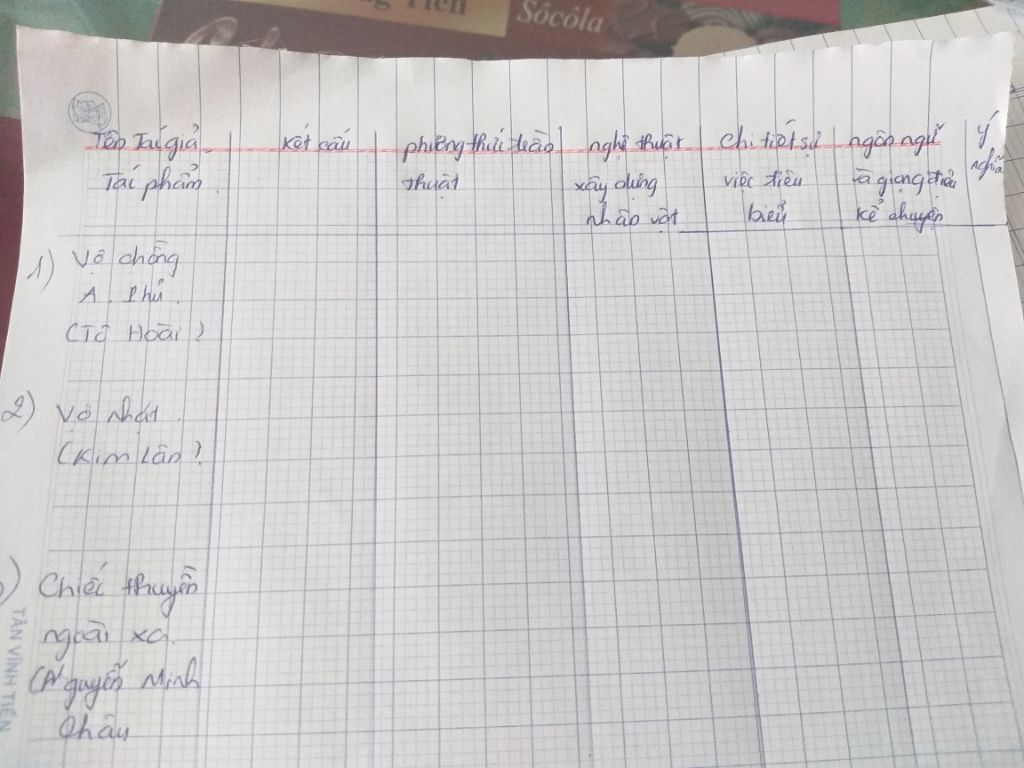 Tiến
Sôcôla
Tên Tác giả
Tác phẩm
kết cấu
phương thức trần
thuật
nghệ thuật
xây dựng
nhân vật
Chi tiết sự
việc tiêu
biểu
ngôn ngữ
và giọng điệu
kể chuyện
ý
nghĩa
1) Vợ chồng
A Phủ
(Tô Hoài)
2) Vợ nhặt
(Kim Lân)
) Chiếc thuyền
ngoài xa
(Nguyễn Minh
Châu
TÂN VĨNH TIẾN